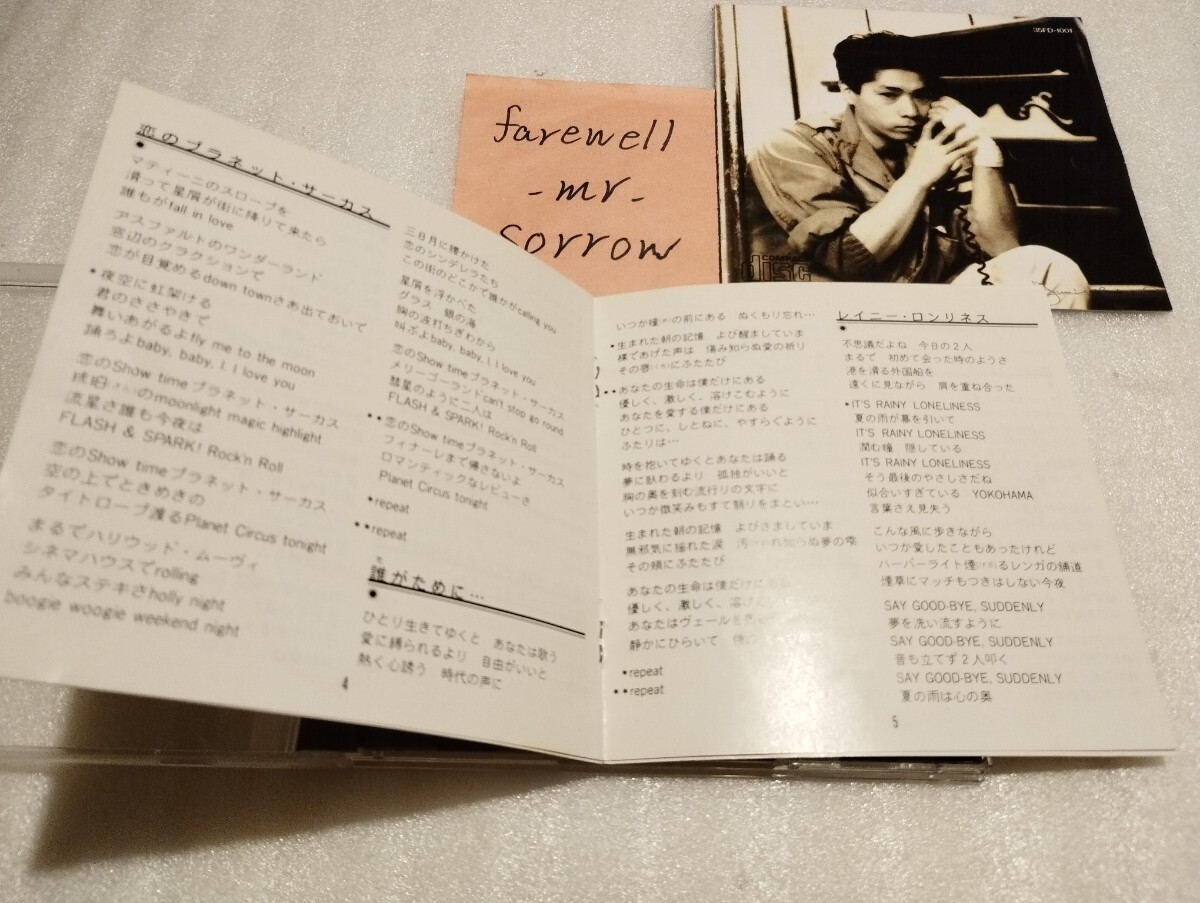 恋のプラネット・サーカス
マティーニのスロープを
滑って星屑が街に降りて来たら
誰もがfall in love
アスファルトのワンダーランド
窓辺のクラクションで
恋が目覚めるdown townさあ出ておいで
*夜空に虹架ける
君のささやきで
舞いあがるよfly me to the moon
踊ろよbaby, baby, I, I love you
恋のShow timeプラネット・サーカス
琥珀のmoonlight magic highlight
流星さ誰も今夜は
FLASH & SPARK! Rock'n Roll
恋のShow timeプラネット・サーカス
空の上でときめきの
タイトロープ渡るPlanet Circus tonight
まるでハリウッド・ムーヴィ
シネマハウスでrolling
みんなステキさholly night
boogie woogie weekend night
三日月に腰かけた
恋のシンデレラたち
この街のどこかで誰かがcalling you
星屑を浮かべた
グラス 銀の海
胸の波打ちぎわから
叫ぶよbaby, baby, I, I love you
恋のShow timeプラネット・サーカス
メリーゴーランドcan't stop go round
彗星のように二人は
FLASH & SPARK! Rock'n Roll
**恋のShow timeプラネット・サーカス
フィナーレまで帰さないよ
ロマンティックなレビューさ
Planet Circus tonight
*repeat
**repeat
誰がために…
ひとり生きてゆくと あなたは歌う
愛に縛られるより 自由がいいと
熱く心誘う 時代の声に
4
いつか瞳の前にある ぬくもり忘れ…
*生まれた朝の記憶 よび醒ましていま
裸であげた声は 傷み知らぬ愛の祈り
その唇にふたたび
**あなたの生命は僕だけにある
優しく、激しく、溶けこむように
あなたを愛する僕だけにある
ひとつに、しとねに、やすらぐように
ふたりは…
時を抱いてゆくとあなたは踊る
夢に臥わるより 孤独がいいと
胸の奥を刻む流行りの文字に
いつか微笑みもすて 飾りをまとい…
生まれた朝の記憶 よびさましていま
無邪気に揺れた涙 汚れ知らぬ夢の雫
その頬にふたたび
あなたの生命は僕だけにある
優しく、激しく、溶け
あなたはヴェールを
静かにひらいて
*repeat
**repeat
レイニー・ロンリネス
不思議だよね 今日の2人
まるで 初めて会った時のようさ
港を滑る外国船を
遠くに見ながら 肩を重ね合った
*IT'S RAINY LONELINESS
夏の雨が幕を引いて
IT'S RAINY LONELINESS
潤む瞳 隠している
IT'S RAINY LONELINESS
そう最後のやさしさだね
似合いすぎている YOKOHAMA
言葉さえ見失う
こんな風に歩きながら
いつか愛したこともあったけれど
ハーバーライト煙るレンガの舗道
煙草にマッチもつきはしない今夜
SAY GOOD-BYE, SUDDENLY
夢を洗い流すように
SAY GOOD-BYE, SUDDENLY
音も立てず2人叩く
SAY GOOD-BYE, SUDDENLY
夏の雨は心の奥
5
farewell
-mr-
sorrow
35FD-1001
COMPACT
disc